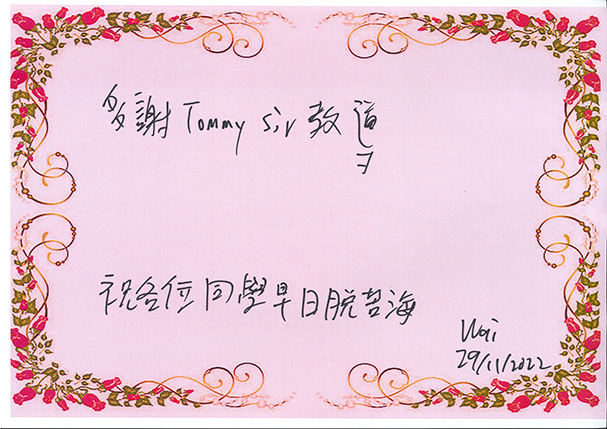 多謝 Tommy Sir 教導
祝各位同學早日脫苦海
Wai
29/11/2022